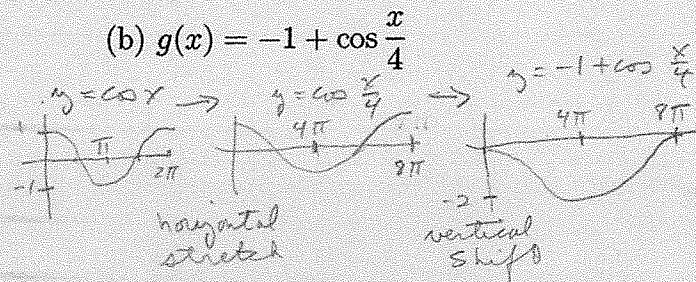 (b) g(x) = −1 + cos x/4
y = cos x → y = cos x/4 → y = −1 + cos x/4
1 π 2π −1
4π 8π
4π 8π −2
horizontal stretch
vertical shift